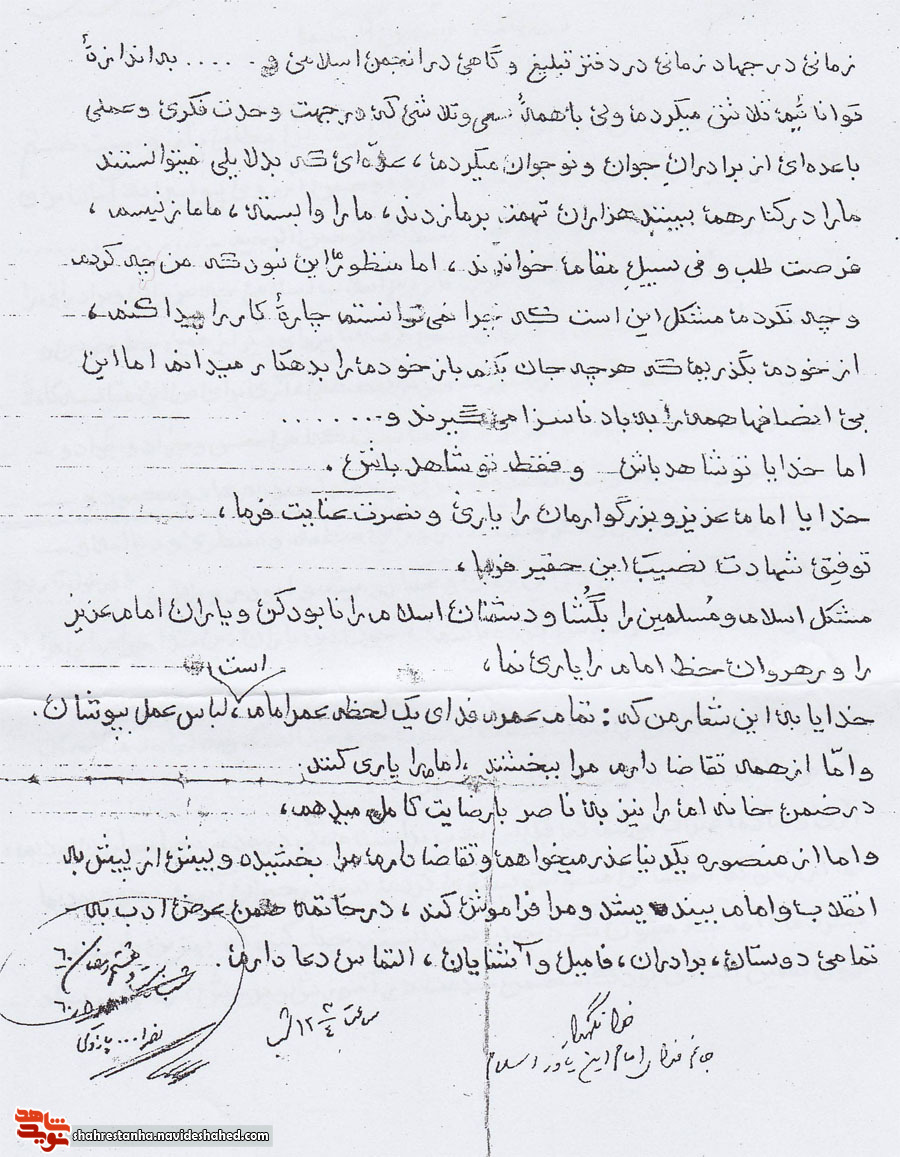 زمانی در جهاد زمانی در دفتر تبلیغ و گاهی در انجمن اسلامی و ..... به اندازهٔ
توانائیم تلاش میکردم ولی با همهٔ سعی و تلاشی که در جهت وحدت فکری و عملی
با عده‌ای از برادران جوان و نوجوان میکردم ، عدّه‌ای که بدلایلی نمیتوانستند
ما را در کنار هم ببینند هزاران تهمت بر ما زدند ، ما را وابسته ،
فرصت طلب و فی سبیل مقام خواندند ، اما منظورم این نبود که من چه کردم
و چه نکردم مشکل این است که چرا نمی‌توانستم چارهٔ کار را پیدا کنم ،
از خودم بگذریم که هر چه جان بکنم باز خودم را بدهکار میدانم اما این
بی انصافها همه را به باد ناسزا می‌گیرند و .......
اما خدایا تو شاهد باش و فقط تو شاهد باش .
خدایا امام عزیز و بزرگوارمان را یاری و نصرت عنایت فرما ،
توفیق شهادت نصیب این حقیر فرما ،
مشکل اسلام و مُسلمین را بگُشا و دشمنان اسلام را نابود کن و یاران امام عزیز
را و رهروان خط امام را یاری نما ،
خدایا به این شعار من که : تمام عمرم فدای یک لحظه عمر امام است ، لباس عمل بپوشان .
و امّا از همه تقاضا دارم مرا ببخشند ، امام را یاری کنند .
در ضمن خانه ام را نیز به ناصر با رضایت کامل میدهم ،
و اما از منصوره یکدنیا عذر میخواهم و تقاضا دارم مرا بخشیده و بیش از پیش به
انقلاب و امام بیندیشد و مرا فراموش کند ، در خاتمه ضمن عرض ادب به
تمامی دوستان ، برادران ، فامیل و آشنایان ، التماس دعا دارم .
رمضان ۶۰
ساعت ۱۲ ۳/۴ شب
خدا نگهدار
جانم فدای امام این یاور اسلام
شاهد
نوید
shahrestanha.navideshahed.com